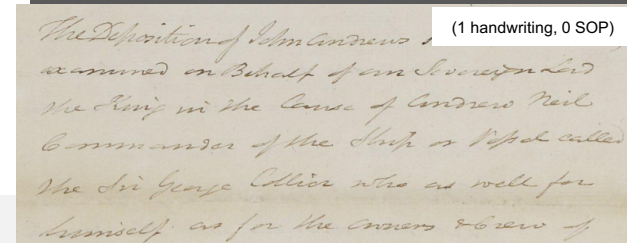 (1 handwriting, 0 SOP)
The Deposition of John Andrews
examined on Behalf of our Sovereign Lord
the King in the Cause of Andrew Neil
Commander of the Ship or Vessel called
the Sir George Collier who as well for
himself as for the owners & Crew of